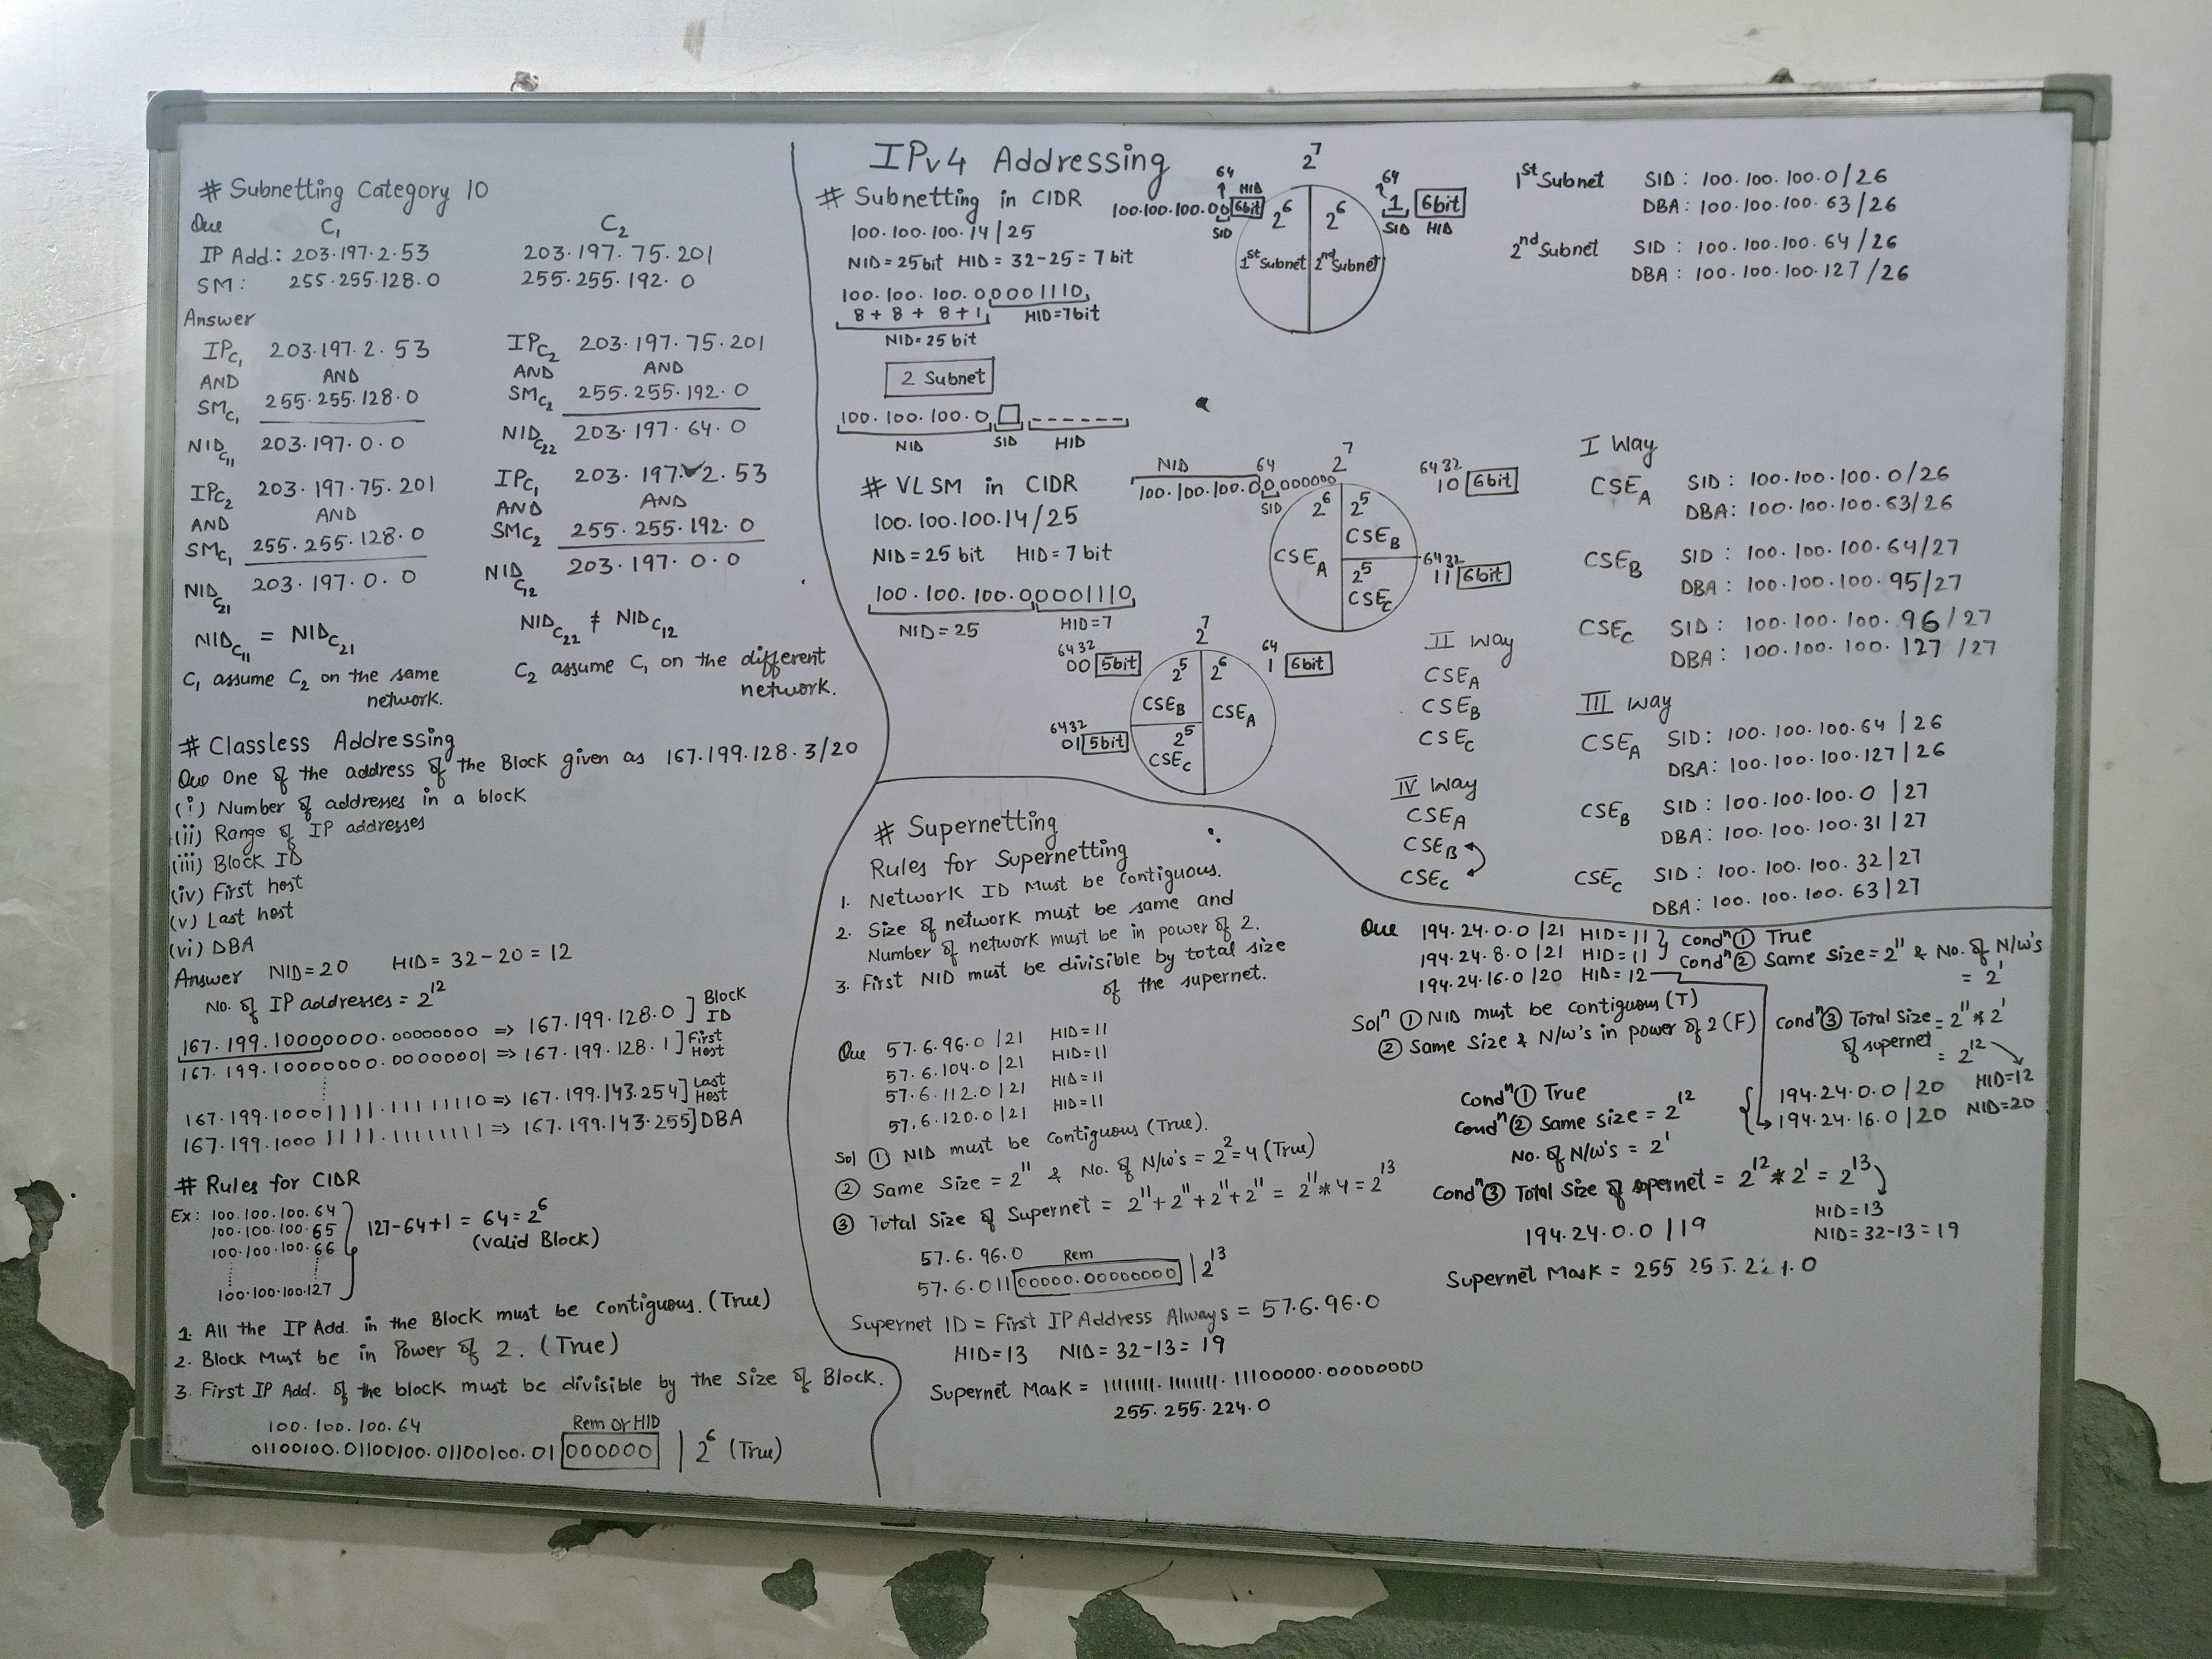 IPv4 Addressing
# Subnetting Category 10
Que C₁ C₂
IP Add.: 203.197.2.53 203.197.75.201
SM: 255.255.128.0 255.255.192.0
Answer
IP_C₁ 203.197.2.53 IP_C₂ 203.197.75.201
AND AND AND AND
SM_C₁ 255.255.128.0 SM_C₂ 255.255.192.0
NID_C₁₁ 203.197.0.0 NID_C₂₂ 203.197.64.0
IP_C₂ 203.197.75.201 IP_C₁ 203.197.2.53
AND AND AND AND
SM_C₁ 255.255.128.0 SM_C₂ 255.255.192.0
NID_C₂₁ 203.197.0.0 NID_C₁₂ 203.197.0.0
NID_C₁₁ = NID_C₂₁ NID_C₂₂ ≠ NID_C₁₂
C₁ assume C₂ on the same network.
C₂ assume C₁ on the different network.
# Classless Addressing
Que One of the address of the Block given as 167.199.128.3/20
(i) Number of addresses in a block
(ii) Range of IP addresses
(iii) Block ID
(iv) First host
(v) Last host
(vi) DBA
Answer NID=20 HID = 32-20 = 12
No. of IP addresses = 2¹²
167.199.10000000.00000000 => 167.199.128.0] Block ID
167.199.10000000.00000001 => 167.199.128.1] First Host
167.199.10001111.11111110 => 167.199.143.254] Last Host
167.199.10001111.11111111 => 167.199.143.255] DBA
# Rules for CIDR
Ex: 100.100.100.64
100.100.100.65
100.100.100.66
100.100.100.127
127-64+1 = 64 = 2⁶
(Valid Block)
1. All the IP Add. in the Block must be Contiguous. (True)
2. Block Must be in Power of 2. (True)
3. First IP Add. of the block must be divisible by the size of Block.
100.100.100.64 Rem or HID
01100100.01100100.01100100.01 000000 | 2⁶ (True)
# Subnetting in CIDR
100.100.100.14/25
NID=25bit HID = 32-25 = 7 bit
100.100.100.00001110
8 + 8 + 8+1 HID=7bit
NID=25 bit
2 Subnet
100.100.100.0 _ _ _ _ _ _
NID SID HID
2⁷
64 HID
100.100.100.00 6bit
SID
64
1 6bit
SID HID
2⁶ 2⁶
1st Subnet 2nd Subnet
1st Subnet SID: 100.100.100.0/26
DBA: 100.100.100.63/26
2nd Subnet SID: 100.100.100.64/26
DBA: 100.100.100.127/26
# VLSM in CIDR
100.100.100.14/25
NID=25 bit HID=7 bit
100.100.100.00001110
NID=25 HID=7
NID 64 2⁷
100.100.100.00000000
SID
2⁶ 2⁵
CSE_A CSE_B
2⁵
CSE_C
64 32
10 6bit
64 32
11 6bit
2⁷
64 32
00 5bit
64
1 6bit
2⁵ 2⁶
CSE_B CSE_A
64 32
01 5bit
2⁵
CSE_C
I Way
CSE_A SID: 100.100.100.0/26
DBA: 100.100.100.63/26
CSE_B SID: 100.100.100.64/27
DBA: 100.100.100.95/27
CSE_C SID: 100.100.100.96/27
DBA: 100.100.100.127/27
II Way
CSE_A
CSE_B
CSE_C
III Way
CSE_A SID: 100.100.100.64/26
DBA: 100.100.100.127/26
CSE_B SID: 100.100.100.0/27
DBA: 100.100.100.31/27
CSE_C SID: 100.100.100.32/27
DBA: 100.100.100.63/27
IV Way
CSE_A
CSE_B
CSE_C
# Supernetting
Rules for Supernetting
1. Network ID Must be Contiguous.
2. Size of network must be same and
Number of network must be in power of 2.
3. First NID must be divisible by total size
of the supernet.
Que 57.6.96.0/21 HID=11
57.6.104.0/21 HID=11
57.6.112.0/21 HID=11
57.6.120.0/21 HID=11
Sol ① NID must be contiguous (True).
② Same Size = 2¹¹ & No. of N/w's = 2²=4 (True)
③ Total Size of Supernet = 2¹¹+2¹¹+2¹¹+2¹¹ = 2¹¹*4 = 2¹³
57.6.96.0 Rem
57.6.011 00000.00000000 | 2¹³
Supernet ID = First IP Address Always = 57.6.96.0
HID=13 NID=32-13=19
Supernet Mask = 11111111.11111111.11100000.00000000
255.255.224.0
Que 194.24.0.0/21 HID=11 } Condⁿ① True
194.24.8.0/21 HID=11 } Condⁿ② Same Size=2¹¹ & No. of N/w's = 2¹
194.24.16.0/20 HID=12
Solⁿ ① NID must be contiguous (T)
② Same Size & N/w's in power of 2 (F)
Condⁿ③ Total Size of supernet = 2¹¹*2¹
= 2¹²
HID=12
NID=20
194.24.0.0/20
194.24.16.0/20
Condⁿ① True
Condⁿ② Same size = 2¹²
No. of N/w's = 2¹
Condⁿ③ Total Size of supernet = 2¹² * 2¹ = 2¹³
HID=13
NID=32-13=19
194.24.0.0/19
Supernet Mask = 255 255.224.0